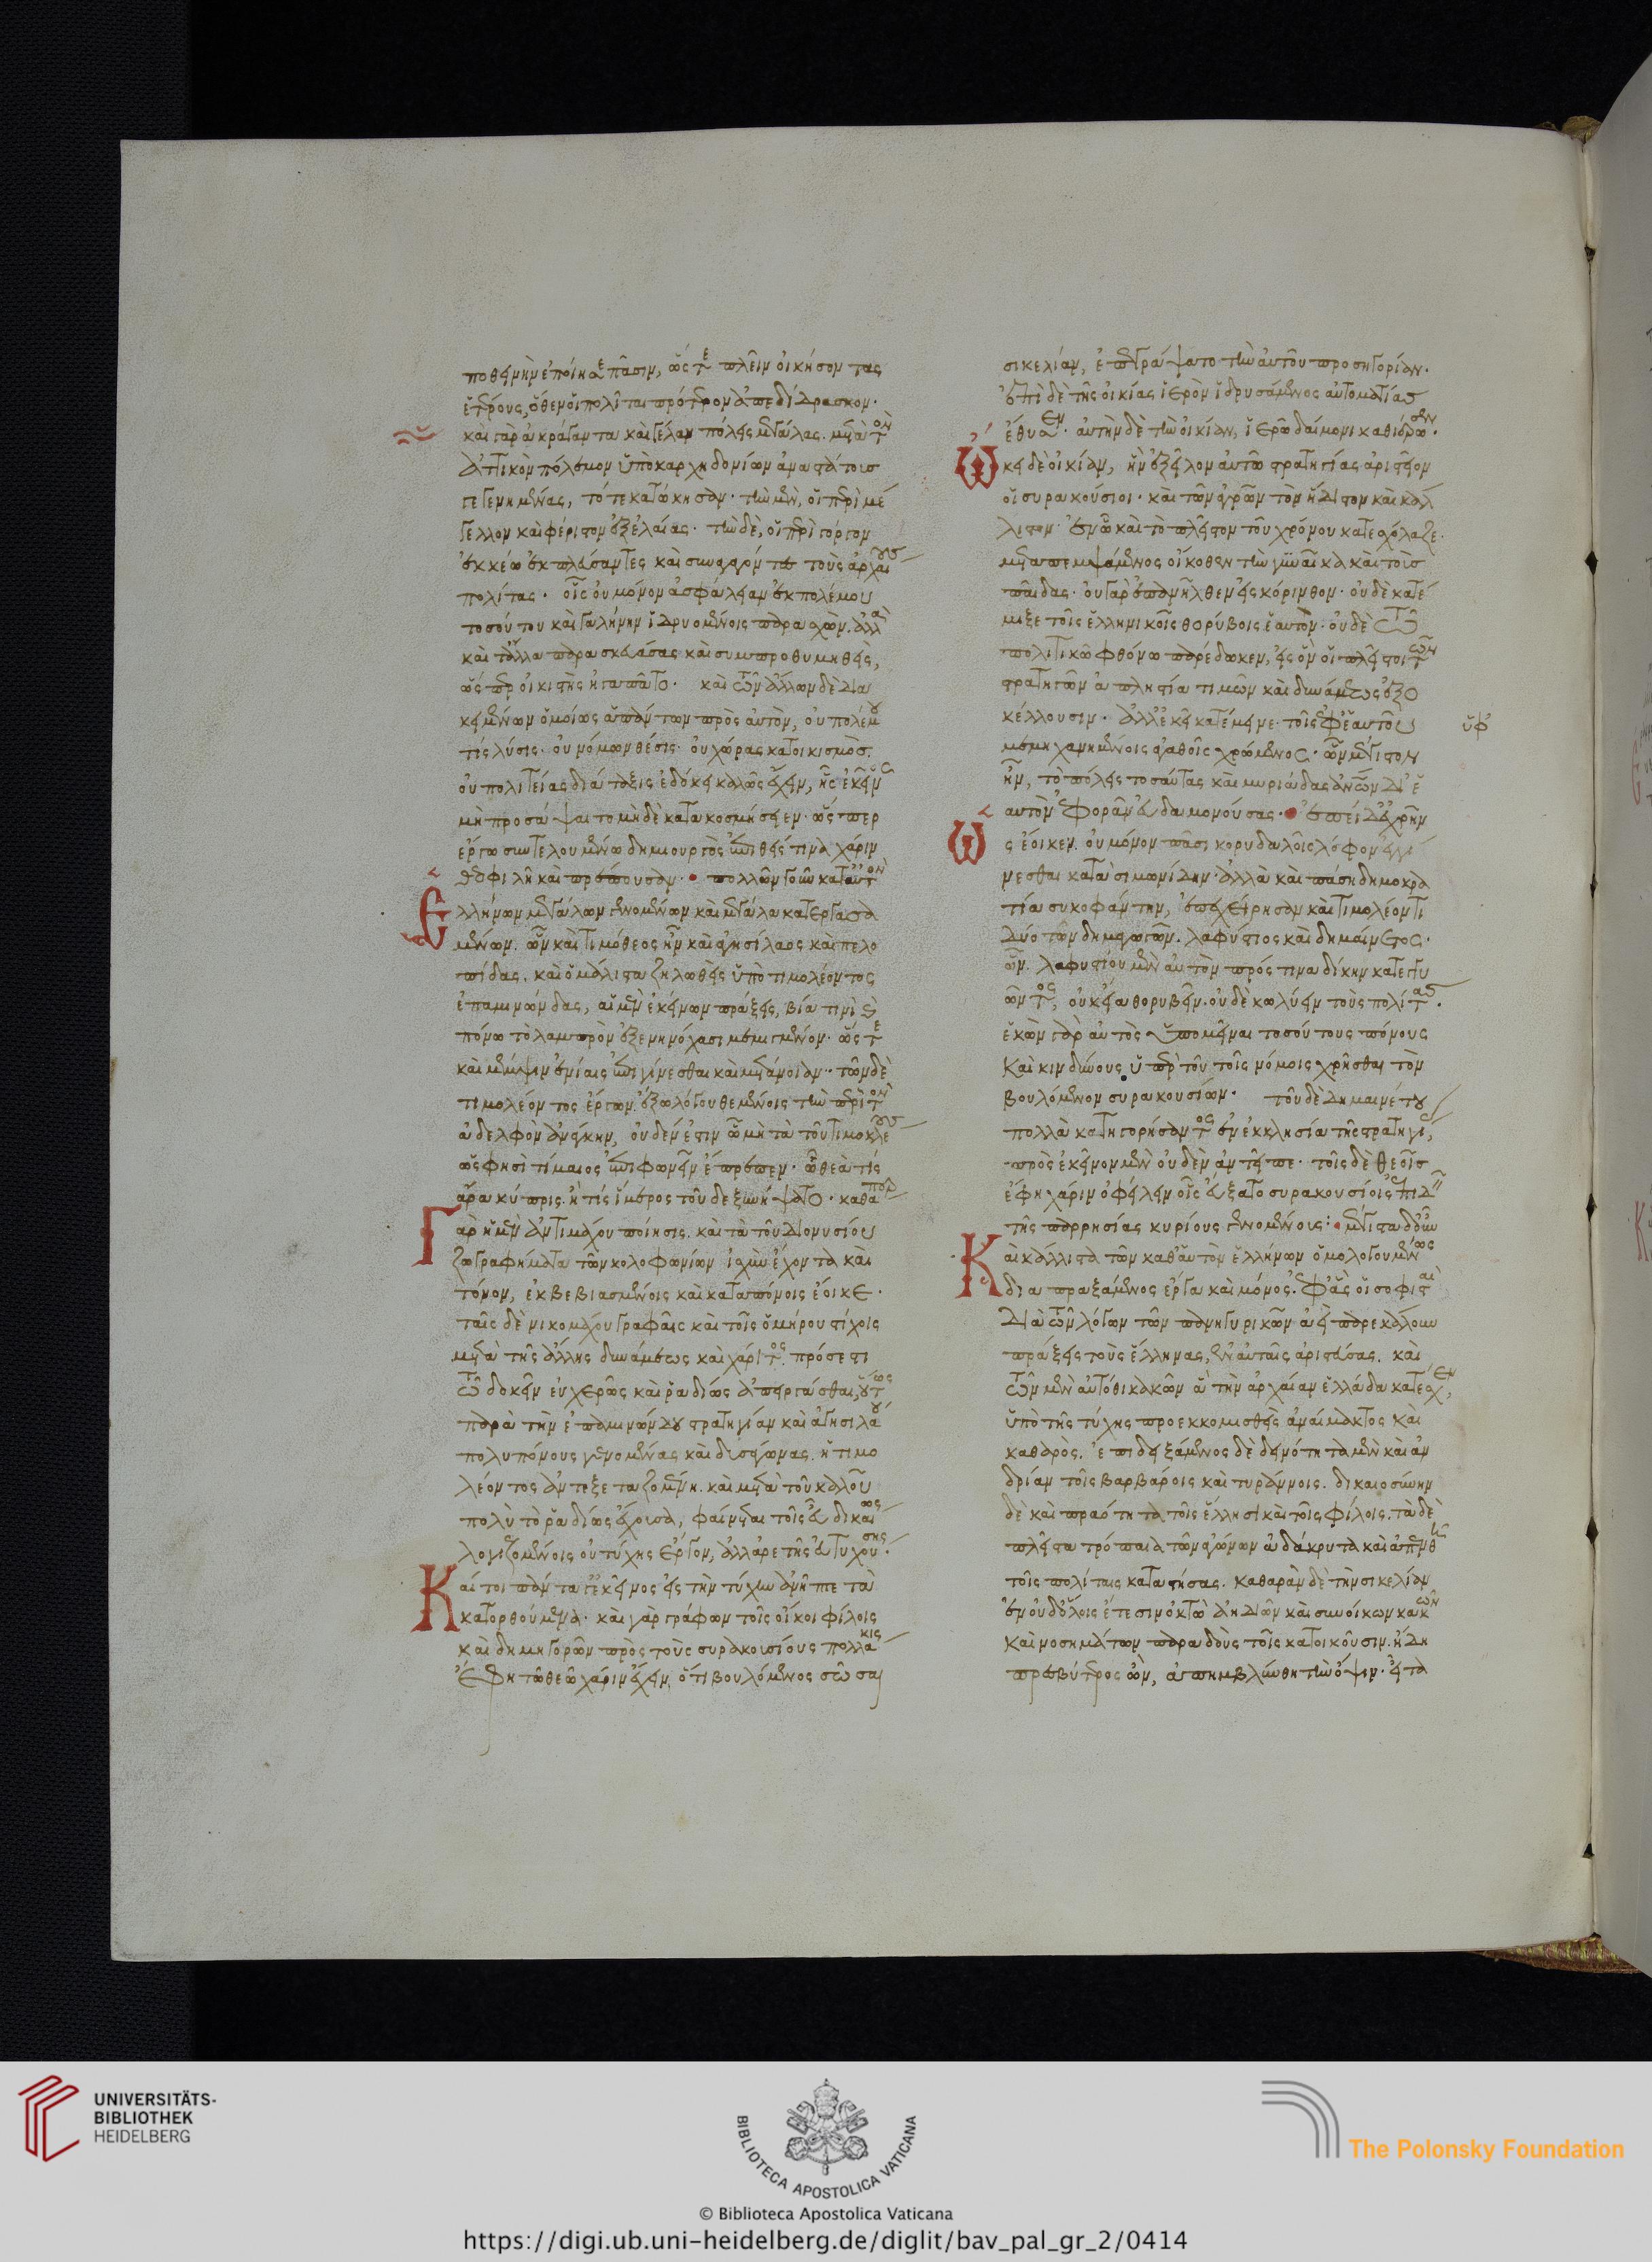 ποθεινὴν ἐποίησε πᾶσιν, ὥστε πλεῖν οἰκήσοντας
ἑτέρους, ὅθεν οἱ πολῖται πρότερον ἀπεδίδρασκον.
καὶ γὰρ ἀκράγαντα καὶ γέλαν πόλεις μεγάλας. μετὰ τὸν
ἀττικὸν πόλεμον ὑπὸ καρχηδονίων ἀναστάτους
γεγενημένας, τότε κατώκησαν. τὴν μὲν, οἱ περὶ μέ
γελλον καὶ φέριστον ἐξ ἐλαίας. τὴν δὲ, οἱ περὶ γόργον
ἐκ κέω ἐκπλεύσαντες καὶ συναγαγόντες τοὺς ἀρχαίους
πολίτας. οἷς οὐ μόνον ἀσφάλειαν ἐκ πολέμου
τοσούτου καὶ γαλήνην ἱδρυομένοις παρασχὼν. ἀλλὰ
καὶ τἄλλα παρασκευάσας καὶ συμπροθυμηθεὶς,
ὥσπερ οἰκιστὴς ἠγαπᾶτο. καὶ τῶν ἄλλων δὲ δια
κειμένων ὁμοίως ἁπάντων πρὸς αὐτὸν, οὐ πολέμου
τίς λύσις. οὐ νόμων θέσις. οὐ χώρας κατοικισμὸς.
οὐ πολιτείας διάταξις ἐδόκει καλῶς ἔχειν, ἧς ἐκεῖνος
μὴ προσάψαιτο μηδὲ κατακοσμήσειεν. ὥσπερ
ἔργω συντελουμένω δημιουργὸς ἐπιθείς τινα χάριν
θεοφιλῆ καὶ πρέπουσαν. πολλῶν γοῦν κατ' αὐτὸν
Ἑλλήνων μεγάλων γενομένων καὶ μεγάλα κατεργασα
μένων. ὧν καὶ τιμόθεος ἦν καὶ ἀγησίλαος καὶ πελο
πίδας. καὶ ὁ μάλιστα ζηλωθεὶς ὑπὸ τιμολέοντος
ἐπαμινώνδας, αἱ μὲν ἐκείνων πράξεις, βία τινὶ καὶ
πόνω τὸ λαμπρὸν ἐξενηνόχασι μεμιγμένον. ὥστε
καὶ μέμψιν ἐνίαις ἐπιγίνεσθαι καὶ μετάνοιαν. τῶν δὲ
τιμολέοντος ἔργων. ἔξω λόγου θεμένοις τὴν περὶ τὸν
ἀδελφὸν ἀνάγκην, οὐδέν ἐστιν ὧ μὴ τὰ τοῦ τιμοκλέους
ὥς φησι τίμαιος ἐπιφωνεῖν ἔπρεπεν. ὦ θεὰ τίς
ἄρα κύπρις. ἢ τίς ἵμερος τοῦδε ξυνήψατο. καθάπερ
Γὰρ ἡ μὲν ἀντιμάχου ποίησις. καὶ τὰ τοῦ διονυσίου
ζωγραφήματα τῶν κολοφωνίων ἰσχὺν ἔχοντα καὶ
τόνον, ἐκβεβιασμένοις καὶ καταπόνοις ἔοικε.
ταῖς δὲ νικομάχου γραφαῖς καὶ τοῖς ὁμήρου στίχοις
μετὰ τῆς ἄλλης δυνάμεως καὶ χάριτος. πρόσεστι
τῶ δοκεῖν εὐχερῶς καὶ ῥαδίως ἀπειργάσθαι, οὕτως
παρὰ τὴν ἐπαμινώνδου στρατηγίαν καὶ ἀγησιλάου
πολυπόνους γενομένας καὶ δυσάγωνας. ἡ τιμο
λέοντος ἀντεξεταζομένη. καὶ μετὰ τοῦ καλοῦ
πολὺ τὸ ῥαδίως ἔχουσα, φαίνεται τοῖς εὖ δικαίως
λογιζομένοις οὐ τύχης ἔργον, ἀλλ' ἀρετῆς εὐτυχούσης.
Καίτοι πάντα γ' ἐκεῖνος εἰς τὴν τύχην ἀνῆπτε τὰ
κατορθούμενα. καὶ γὰρ γράφων τοῖς οἴκοι φίλοις
καὶ δημηγορῶν πρὸς τοὺς συρακουσίους πολλάκις
ἔφη τῶ θεῶ χάριν ἔχειν, ὅτι βουλόμενος σῶσαι
σικελίαν, ἐπεγράψατο τὴν αὐτοῦ προσηγορίαν.
ἐπὶ δὲ τῆς οἰκίας ἱερὸν ἱδρυσάμενος αὐτοματίας
ἔθυσεν. αὐτὴν δὲ τὴν οἰκίαν, ἱερῶ δαίμονι καθιέρωσεν.
Ὤκει δὲ οἰκίαν, ἣν ἐξεῖλον αὐτῶ στρατηγίας ἀριστεῖον
οἱ συρακούσιοι. καὶ τῶν ἀγρῶν τὸν ἥδιστον καὶ κάλ
λιστον. ἐν ὧ καὶ τὸ πλεῖστον τοῦ χρόνου κατεσχόλαζε.
μεταπεμψάμενος οἴκοθεν τὴν γυναῖκα καὶ τοὺς
παῖδας. οὐ γὰρ ἐπανῆλθεν εἰς κόρινθον. οὐδὲ κατέ
μιξε τοῖς ἑλληνικοῖς θορύβοις ἑαυτὸν. οὐδὲ τῶ
πολιτικῶ φθόνω παρέδωκεν, εἰς ὃν οἱ πλεῖστοι τῶν
στρατηγῶν ἀπληστία τιμῶν καὶ δυνάμεως ἐξο
κέλλουσιν. ἀλλ' ἐκεῖ κατέμεινε. τοῖς ἐφ' ἑαυτοῦ
ὑφ'
μεμηχανημένοις ἀγαθοῖς χρώμενος. ὧν μέγιστον
ἦν, τὸ πόλεις τοσαύτας καὶ μυριάδας ἀνθρώπων δι' ἑ
αυτὸν ἐφορᾶν εὐδαιμονούσας. ἐπεὶ δὲ χρῆν
Ὡς ἔοικεν. οὐ μόνον πᾶσι κορυδαλοῖς λόφον ἐγγί
νεσθαι κατὰ σιμωνίδην. ἀλλὰ καὶ πάση δημοκρα
τία συκοφάντην, ἐπεχείρησαν καὶ τιμολέοντι
δύο τῶν δημαγωγῶν. λαφύστιος καὶ δημαίνετος.
ὧν. λαφυστίου μὲν αὐτὸν πρός τινα δίκην κατεγγυ
ῶντος, οὐκ εἴα θορυβεῖν. οὐδὲ κωλύειν τοὺς πολίτας.
ἑκὼν γὰρ αὐτὸς ὑπομεῖναι τοσούτους πόνους
καὶ κινδύνους ὑπὲρ τοῦ τοῖς νόμοις χρῆσθαι τὸν
βουλόμενον συρακουσίων. τοῦ δὲ δημαινέτου
πολλὰ κατηγορήσαντος ἐν ἐκκλησία τῆς στρατηγί,
πρὸς ἐκεῖνον μὲν οὐδὲν ἀντεῖπε. τοῖς δὲ θεοῖς
ἔφη χάριν ὀφείλειν οἷς εὔξατο συρακουσίοις ἐπιδεῖν
τῆς παρρησίας κυρίους γενομένους: μέγιστα δ' οὖν
Καὶ κάλλιστα τῶν καθ' αὑτὸν ἑλλήνων ὁμολογουμένως
διαπραξάμενος ἔργα καὶ μόνος. ἐφ' ἃς οἱ σοφισταὶ
διὰ τῶν λόγων τῶν πανηγυρικῶν ἀεὶ παρεκάλουν
πράξεις τοὺς ἕλληνας, ἐν αὐταῖς ἀριστεύσας. καὶ
τῶν μὲν αὐτόθι κακῶν ἃ τὴν ἀρχαίαν ἑλλάδα κατέσχεν,
ὑπὸ τῆς τύχης προεκκομισθεὶς ἀναίμακτος καὶ
καθαρὸς. ἐπιδειξάμενος δὲ δεινότητα μὲν καὶ ἀν
δρίαν τοῖς βαρβάροις καὶ τυράννοις. δικαιοσύνην
δὲ καὶ πραότητα τοῖς ἕλλησι καὶ τοῖς φίλοις. τὰ δὲ
πλεῖστα τρόπαια τῶν ἀγώνων ἀδάκρυτα καὶ ἀπενθῆ
τοῖς πολίταις καταστήσας. καθαρὰν δὲ τὴν σικελίαν
ἐν οὐδ' ὅλοις ἔτεσιν ὀκτὼ ἀϊδίων καὶ συνοίκων κακῶν
καὶ νοσημάτων παραδοὺς τοῖς κατοικοῦσιν. ἤδη
πρεσβύτερος ὢν, ἀπημβλύνθη τὴν ὄψιν. εἶτα
UNIVERSITÄTS-
BIBLIOTHEK
HEIDELBERG
BIBLIOTECA APOSTOLICA VATICANA
The Polonsky Foundation
© Biblioteca Apostolica Vaticana
https://digi.ub.uni-heidelberg.de/diglit/bav_pal_gr_2/0414